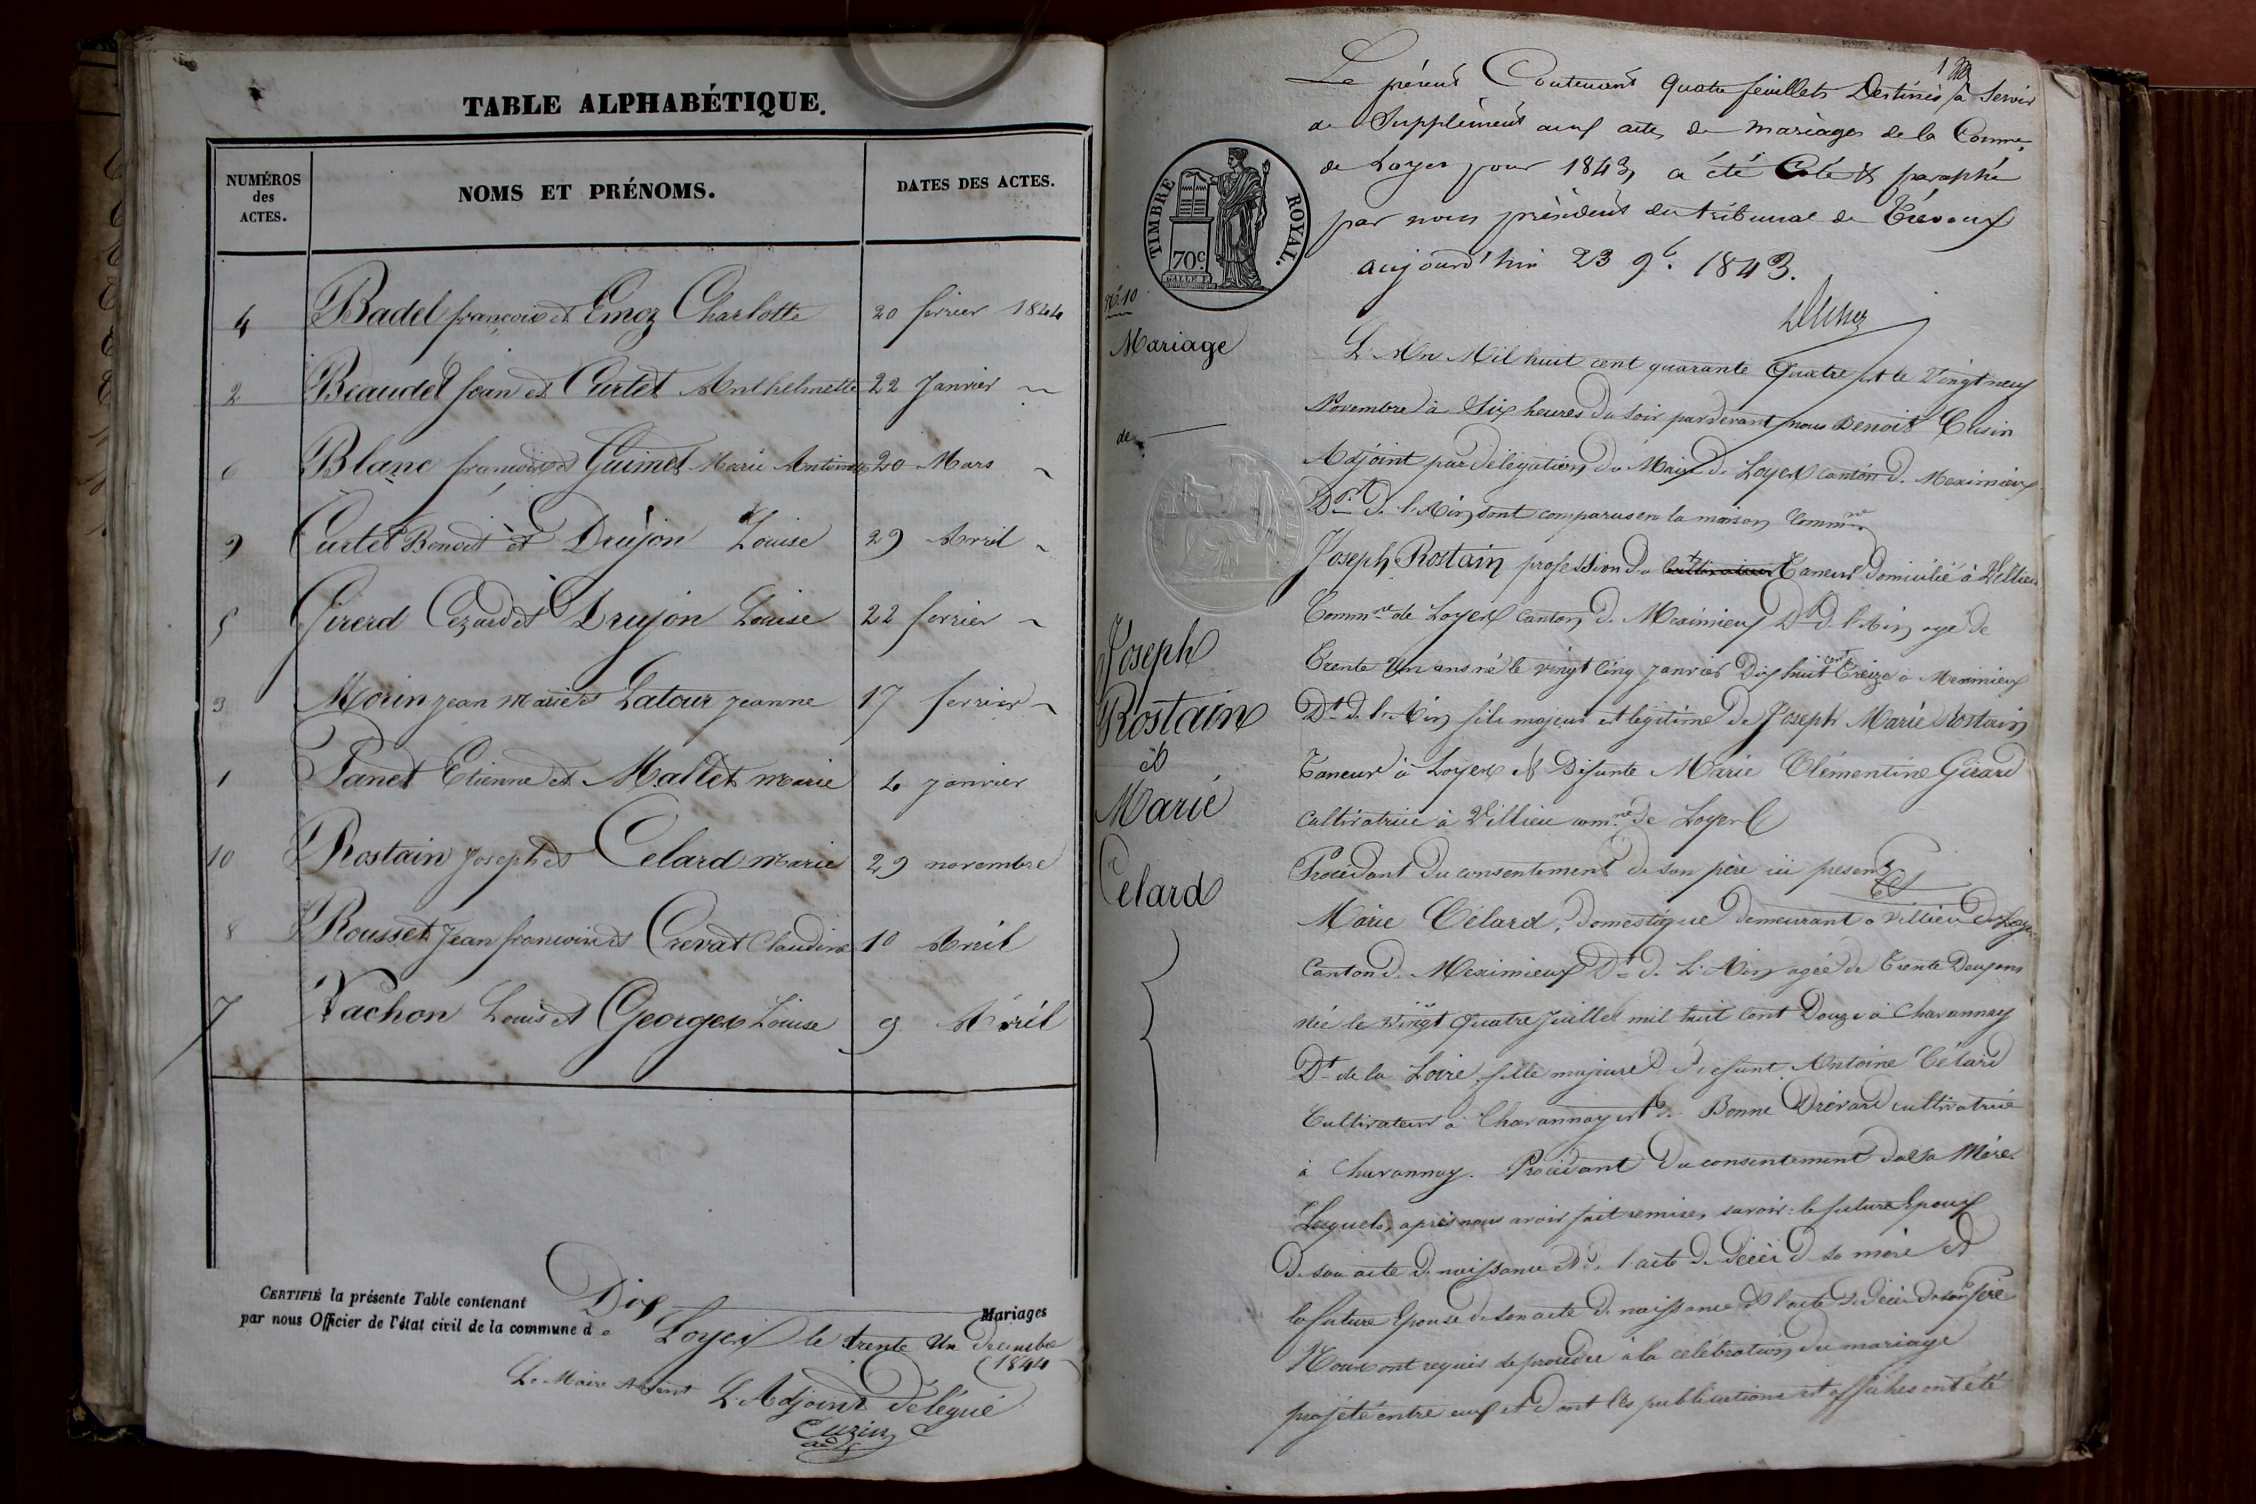 TABLE ALPHABÉTIQUE.
NUMÉROS des ACTES.
NOMS ET PRÉNOMS.
DATES DES ACTES.
4 Badel françois et Emoz Charlotte 20 fevrier 1844
2 Beaudet Jean et Curtet Anthelmette 22 Janvier
6 Blanc françois et Guimet Marie Antoinette 20 Mars
9 Curtet Benoit et Drujon Louise 29 Avril
5 Girerd Cezard et Drujon Louise 22 fevrier
3 Morin jean Marie et Latour jeanne 17 fevrier
1 Panet Etienne et Mallet Marie 4 janvier
10 Rostain Joseph et Celard Marie 29 novembre
8 Rousset Jean francois et Crevat Claudine 10 Avril
7 Vachon Louis et Georges Louise 9 Avril
CERTIFIÉ la présente Table contenant Dix Mariages
par nous Officier de l'état civil de la commune de
Loyes le trente Un decembre
1844
Le Maire Absent L'Adjoint Délégué
Cuzin
adj
1
Le présent Contenant quatre feuillets Destinés à Servir
de Supplément aux actes de mariages de la Comme
de Loyes pour 1843, a été Coté & paraphé
par nous président du tribunal de Trévoux
aujourd'hui 23 9b. 1843.
TIMBRE ROYAL.
70c
GALLE F.
N° 10
Mariage
de
Joseph
Rostain
et
Marie
Celard
L'An Mil huit cent quarante Quatre et le Vingt neuf
Novembre à Six heures du Soir pardevant nous Benoit Cusin
Adjoint par délégation du Maire de Loyes canton de Meximieux
Dpt de l'Ain sont comparus en la maison Commne
Joseph Rostain profession de Cultivateur Taneur domicilié à Villieu
Commne de Loyes Canton de Meximieux Dt de l'Ain agé de
Trente Un ans né le vingt Cinq Janvier Dix huit cent Treize à Meximieux
Dt de l'Ain fils majeur et légitime de Joseph Marie Rostain
Taneur à Loyes et Défunte Marie Clémentine Girard
Cultivatrice à Villieu comne de Loyes
Procédant du consentement de son père ici present Et
Marie Célard, Domestique demeurant à Villieu de Loyes
Canton de Meximieux Dt de L'Ain agée de Trente Deux ans
née le Vingt Quatre Juillet mil huit Cent Douze à Chavannay
Dt de la Loire, fille majeure de défunt Antoine Célard
Cultivateur à Chavannay et de Bonne Drévard cultivatrice
à Chavannay. Procédant du consentement de sa Mère.
Lesquels, après nous avoir fait remise, savoir: le future Epoux
de son acte de naissance et de l'acte de Décès de sa mère et
la future Epouse de son acte de naissance et l'acte de décès de son père
Nous ont requis de procéder à la célébration du mariage
projeté entre eux et dont les publications et affiches ont été